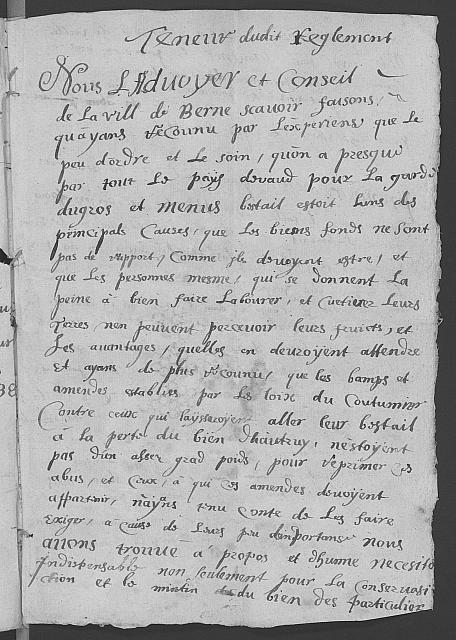 Teneur dudit Reglement
Nous L'Advoyer et Conseil
de La vill de Berne scavoir faisons,
qu'ayans Reconnu par L'experiens que le
peu d'ordre et le soin, qu'on a presque
par tout Le pays devaud pour La garde
dugros et menus bestail estoit luns des
principals Causes, que Les biens fonds ne sont
pas de rapport, Comme ils devoyent estre, et
que Les personnes mesme, qui se donnent La
peine à bien faire Labourer, et Cuetiver Leurs
Terres, nen peuvent percevoir leurs fruicts, et
Les avantages, quelles en devroyent attendre
Et ayans de plus reconnu, que les bamps et
amendes establies par les loix du Coutumier
Contre ceux qui laysseroyent aller leur bestail
à la perte du bien d'hautruy, nestoyent
pas d'un assez grad poids, pour reprimer ces
abus, et Ceux, à qui ces amendes devoyent
appartenir, n'ayans tenu Conte de Les faire
Exiger, à Cause de Leurs peu d'importanse nous
avons trouvé à propos et d'hune necesité
Indispensable non seulement pour la Conservasi
tion et le mintien du bien des particulier